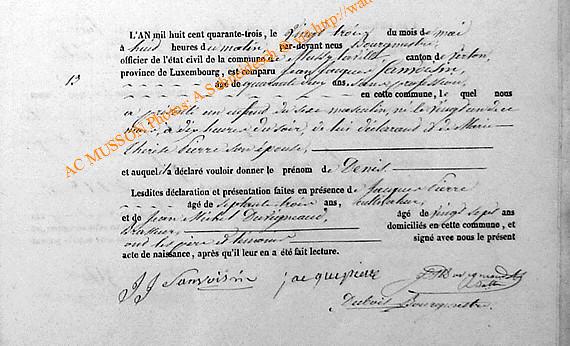 L'AN mil huit cent quarante-trois, le Vingt trois du mois de mai
à huit heures du matin, par-devant nous Bourgmestre,
officier de l'état civil de la commune de Mussy la ville canton de Virton,
province de Luxembourg, est comparu Jean Jacques Sanvoisin,
13
âgé de quarante deux ans, sans profession
en cette commune, le quel nous
a présenté un enfant du sexe masculin, né le vingt un de ce
mois, à dix heures du soir, de lui déclarant et de Marie
Thérèse Pierre son épouse,
et auquel il a déclaré vouloir donner le prénom de Denis.
Lesdites déclaration et présentation faites en présence de Jacques Pierre
âgé de septante trois ans, cultivateur,
et de Jean Michel âgé de vingt sept ans
brasseur, domiciliés en cette commune, et
ont les père et témoins signé avec nous le présent
acte de naissance, après qu'il leur en a été fait lecture.
JJ Sanvoisin jacque pierre
Dubois Bourgmestre.
AC MUSSON Photos: A Schneidesch &